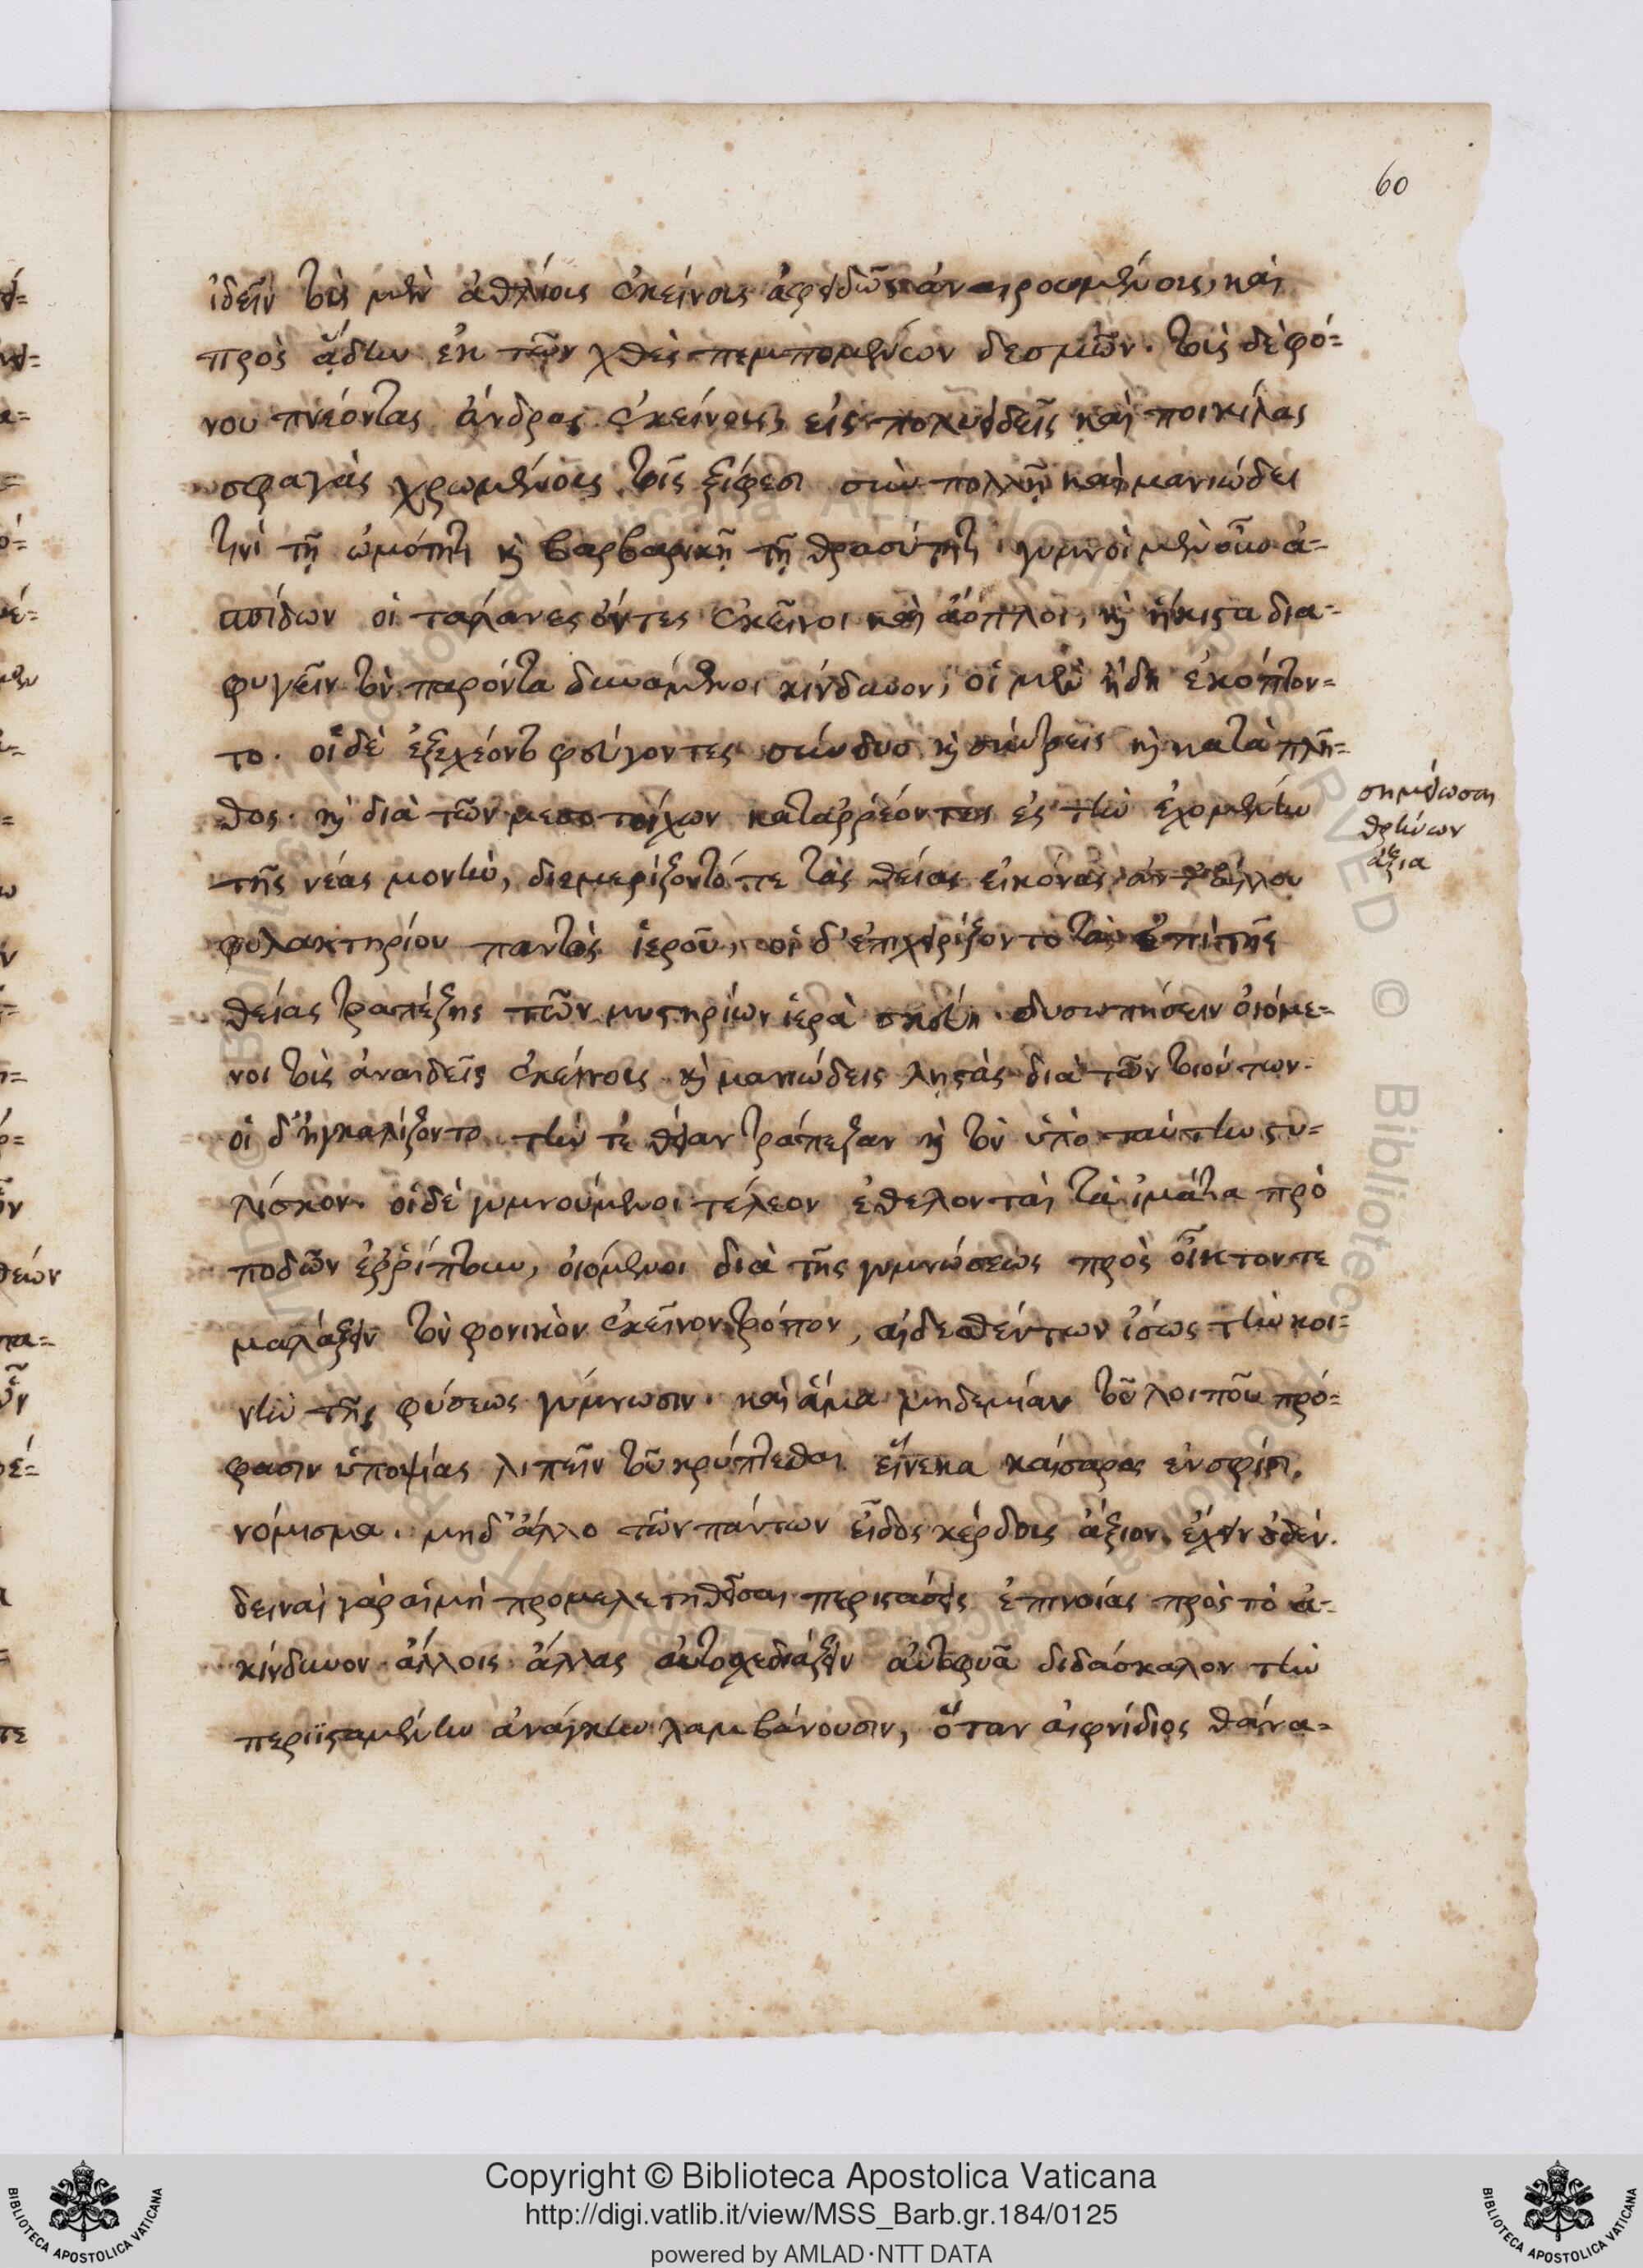 60
ἰδεῖν τοὺς μὲν ἀθλίους ἐκείνους ἀφειδῶς ἀναιρουμένους, καὶ
πρὸς ᾅδην ἐκ τῶν χθὲς πεμπομένων δεσμῶν. τοὺς δὲ φό-
νου πνέοντας ἄνδρας ἐκείνους, εἰς πολυειδεῖς καὶ ποικίλας
σφαγὰς χρωμένους τοῖς ξίφεσι σὺν πολλῇ καὶ μανιώδει
τινὶ τῇ ὠμότητι καὶ βαρβαρικῇ τῇ θρασύτητι. γυμνοὶ μὲν οὖν ἀ-
σπίδων οἱ τάλανες ὄντες ἐκεῖνοι καὶ ἄοπλοι, καὶ ἥκιστα δια-
φυγεῖν τὸν παρόντα δυνάμενοι κίνδυνον, οἱ μὲν ἤδη ἐκόπτον-
το. οἱ δὲ ἐξεχέοντο φεύγοντες σύνδυο καὶ σύντρεις καὶ κατὰ πλῆ-
θος. καὶ διὰ τῶν μεσοτοίχων καταῤῥέοντες ἐς τὴν ἐχομένην
σημείωσαι
θρήνων
ἄξια
τῆς νέας μονὴν, διεμερίζοντό τε τὰς θείας εἰκόνας ἀντ' ἄλλου
φυλακτηρίου παντὸς ἱεροῦ, οἱ δ' ἐπεχειρίζοντο τὰ ἐπὶ τῆς
θείας τραπέζης τῶν μυστηρίων ἱερὰ σκεύη. δυσωπήσειν οἰόμε-
νοι τοὺς ἀναιδεῖς ἐκείνους καὶ μανιώδεις λῃστὰς διὰ τῶν τοιούτων.
οἱ δ' ἠγκαλίζοντο τήν τε θείαν τράπεζαν καὶ τὸν ὑπὸ ταύτην στυ-
λίσκον. οἱ δὲ γυμνούμενοι τέλεον ἐθελονταὶ τὰ ἱμάτια πρὸ
ποδῶν ἐῤῥίπτουν, οἰόμενοι διὰ τῆς γυμνώσεως πρὸς οἶκτόν τε
μαλάξειν τὸν φονικὸν ἐκεῖνον τρόπον, αἰδεσθέντων ἴσως τὴν κοι-
νὴν τῆς φύσεως γύμνωσιν. καὶ ἅμα μηδεμίαν τοῦ λοιποῦ πρό-
φασιν ὑποψίας λιπεῖν τοῦ κρύπτεσθαι εἵνεκα καίσαρος ἐν σφίσι
νόμισμα. μηδ' ἄλλο τῶν πάντων εἶδος κέρδους ἄξιον ἔχειν οὐδέν.
δειναὶ γὰρ αἱ μὴ προμελετηθεῖσαι περιστάσεις ἐπινοίας πρὸς τὸ ἀ-
κίνδυνον ἄλλοις ἄλλας αὐτοσχεδιάζειν αὐτοφυᾶ διδάσκαλον τὴν
περιϊσταμένην ἀνάγκην λαμβάνουσιν, ὅταν αἰφνίδιος θάνα-
Copyright © Biblioteca Apostolica Vaticana
http://digi.vatlib.it/view/MSS_Barb.gr.184/0125
powered by AMLAD·NTT DATA
BIBLIOTECA APOSTOLICA VATICANA
BIBLIOTECA APOSTOLICA VATICANA